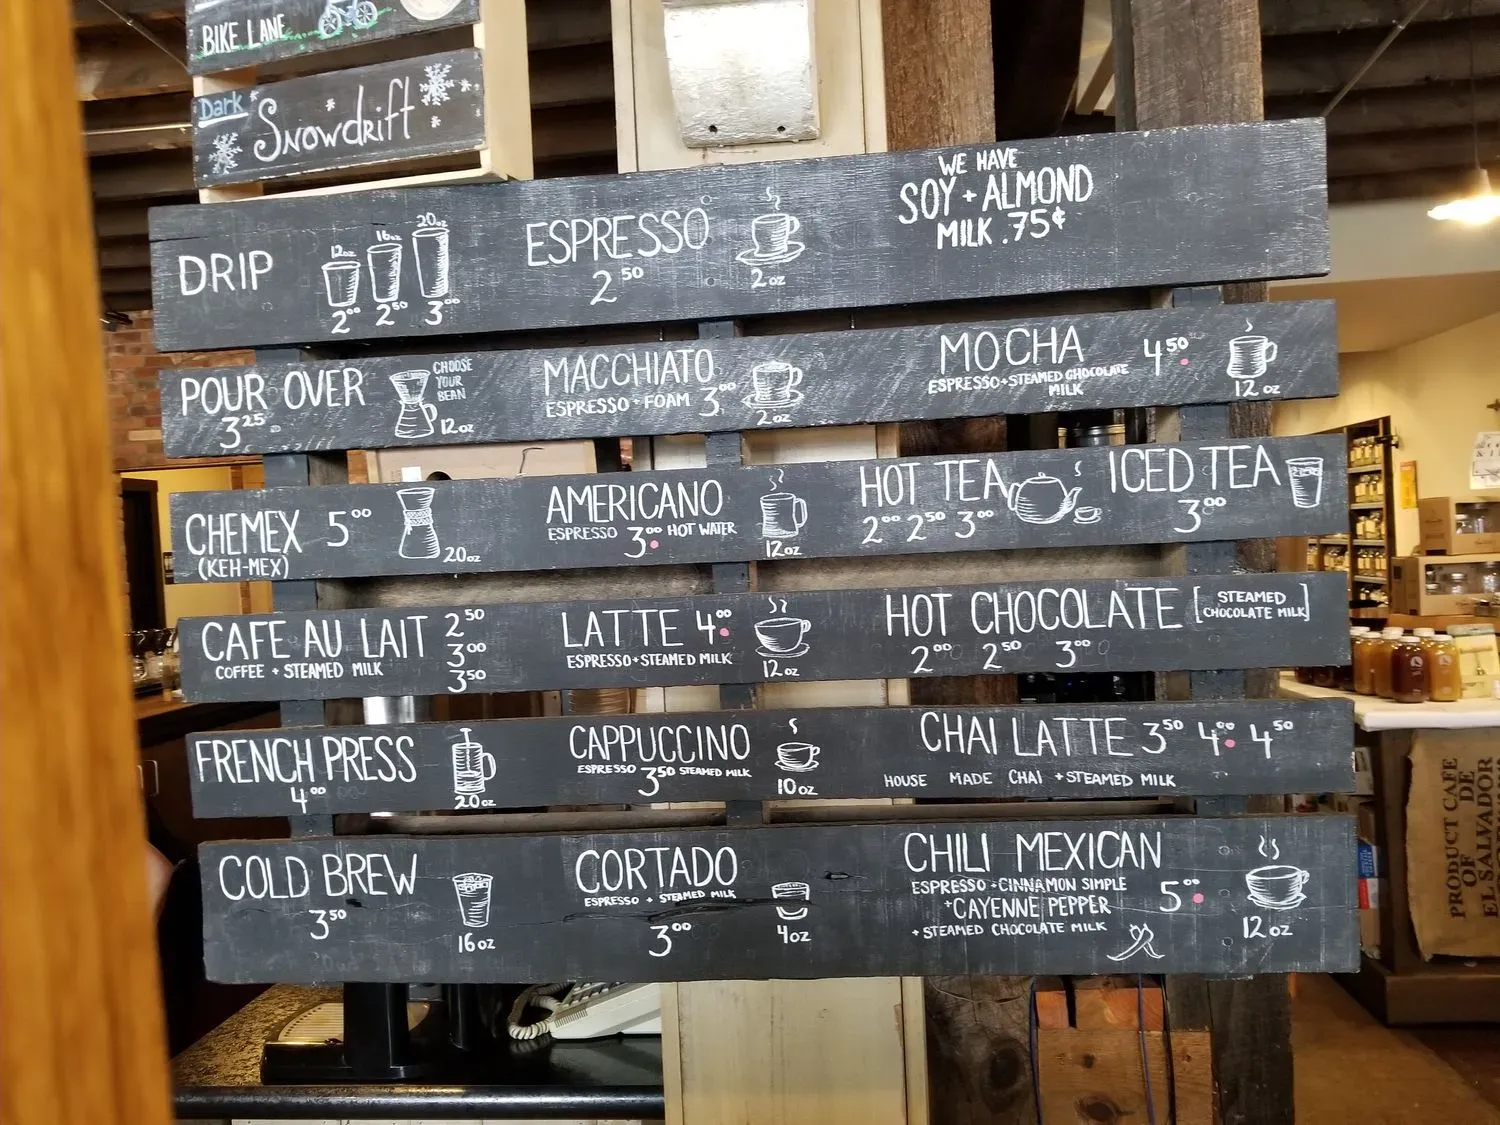 BIKE LANE
Dark
Snowdrift
WE HAVE
SOY + ALMOND
MILK .75¢
DRIP
12oz 16oz 20oz
2⁰⁰ 2⁵⁰ 3⁰⁰
ESPRESSO
2⁵⁰
2oz
POUR OVER
3²⁵
CHOOSE
YOUR
BEAN
12oz
MACCHIATO
ESPRESSO + FOAM 3⁰⁰
2oz
MOCHA 4⁵⁰
ESPRESSO+STEAMED CHOCOLATE
MILK
12oz
CHEMEX 5⁰⁰
(KEH-MEX)
20oz
AMERICANO
ESPRESSO 3⁰⁰ HOT WATER
12oz
HOT TEA
2⁰⁰ 2⁵⁰ 3⁰⁰
ICED TEA
3⁰⁰
CAFE AU LAIT 2⁵⁰
COFFEE + STEAMED MILK 3⁰⁰
3⁵⁰
LATTE 4⁰⁰
ESPRESSO+STEAMED MILK
12oz
HOT CHOCOLATE [STEAMED
CHOCOLATE MILK]
2⁰⁰ 2⁵⁰ 3⁰⁰
FRENCH PRESS
4⁰⁰
20oz
CAPPUCCINO
ESPRESSO 3⁵⁰ STEAMED MILK
10oz
CHAI LATTE 3⁵⁰ 4⁰⁰ 4⁵⁰
HOUSE MADE CHAI + STEAMED MILK
COLD BREW
3⁵⁰
16oz
CORTADO
ESPRESSO + STEAMED MILK
3⁰⁰
4oz
CHILI MEXICAN
ESPRESSO + CINNAMON SIMPLE
+CAYENNE PEPPER 5⁰⁰
+ STEAMED CHOCOLATE MILK
12oz
PRODUCT CAFE
OF DE
EL SALVADOR